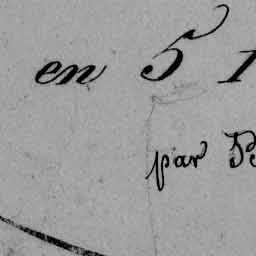 en 5 1
par